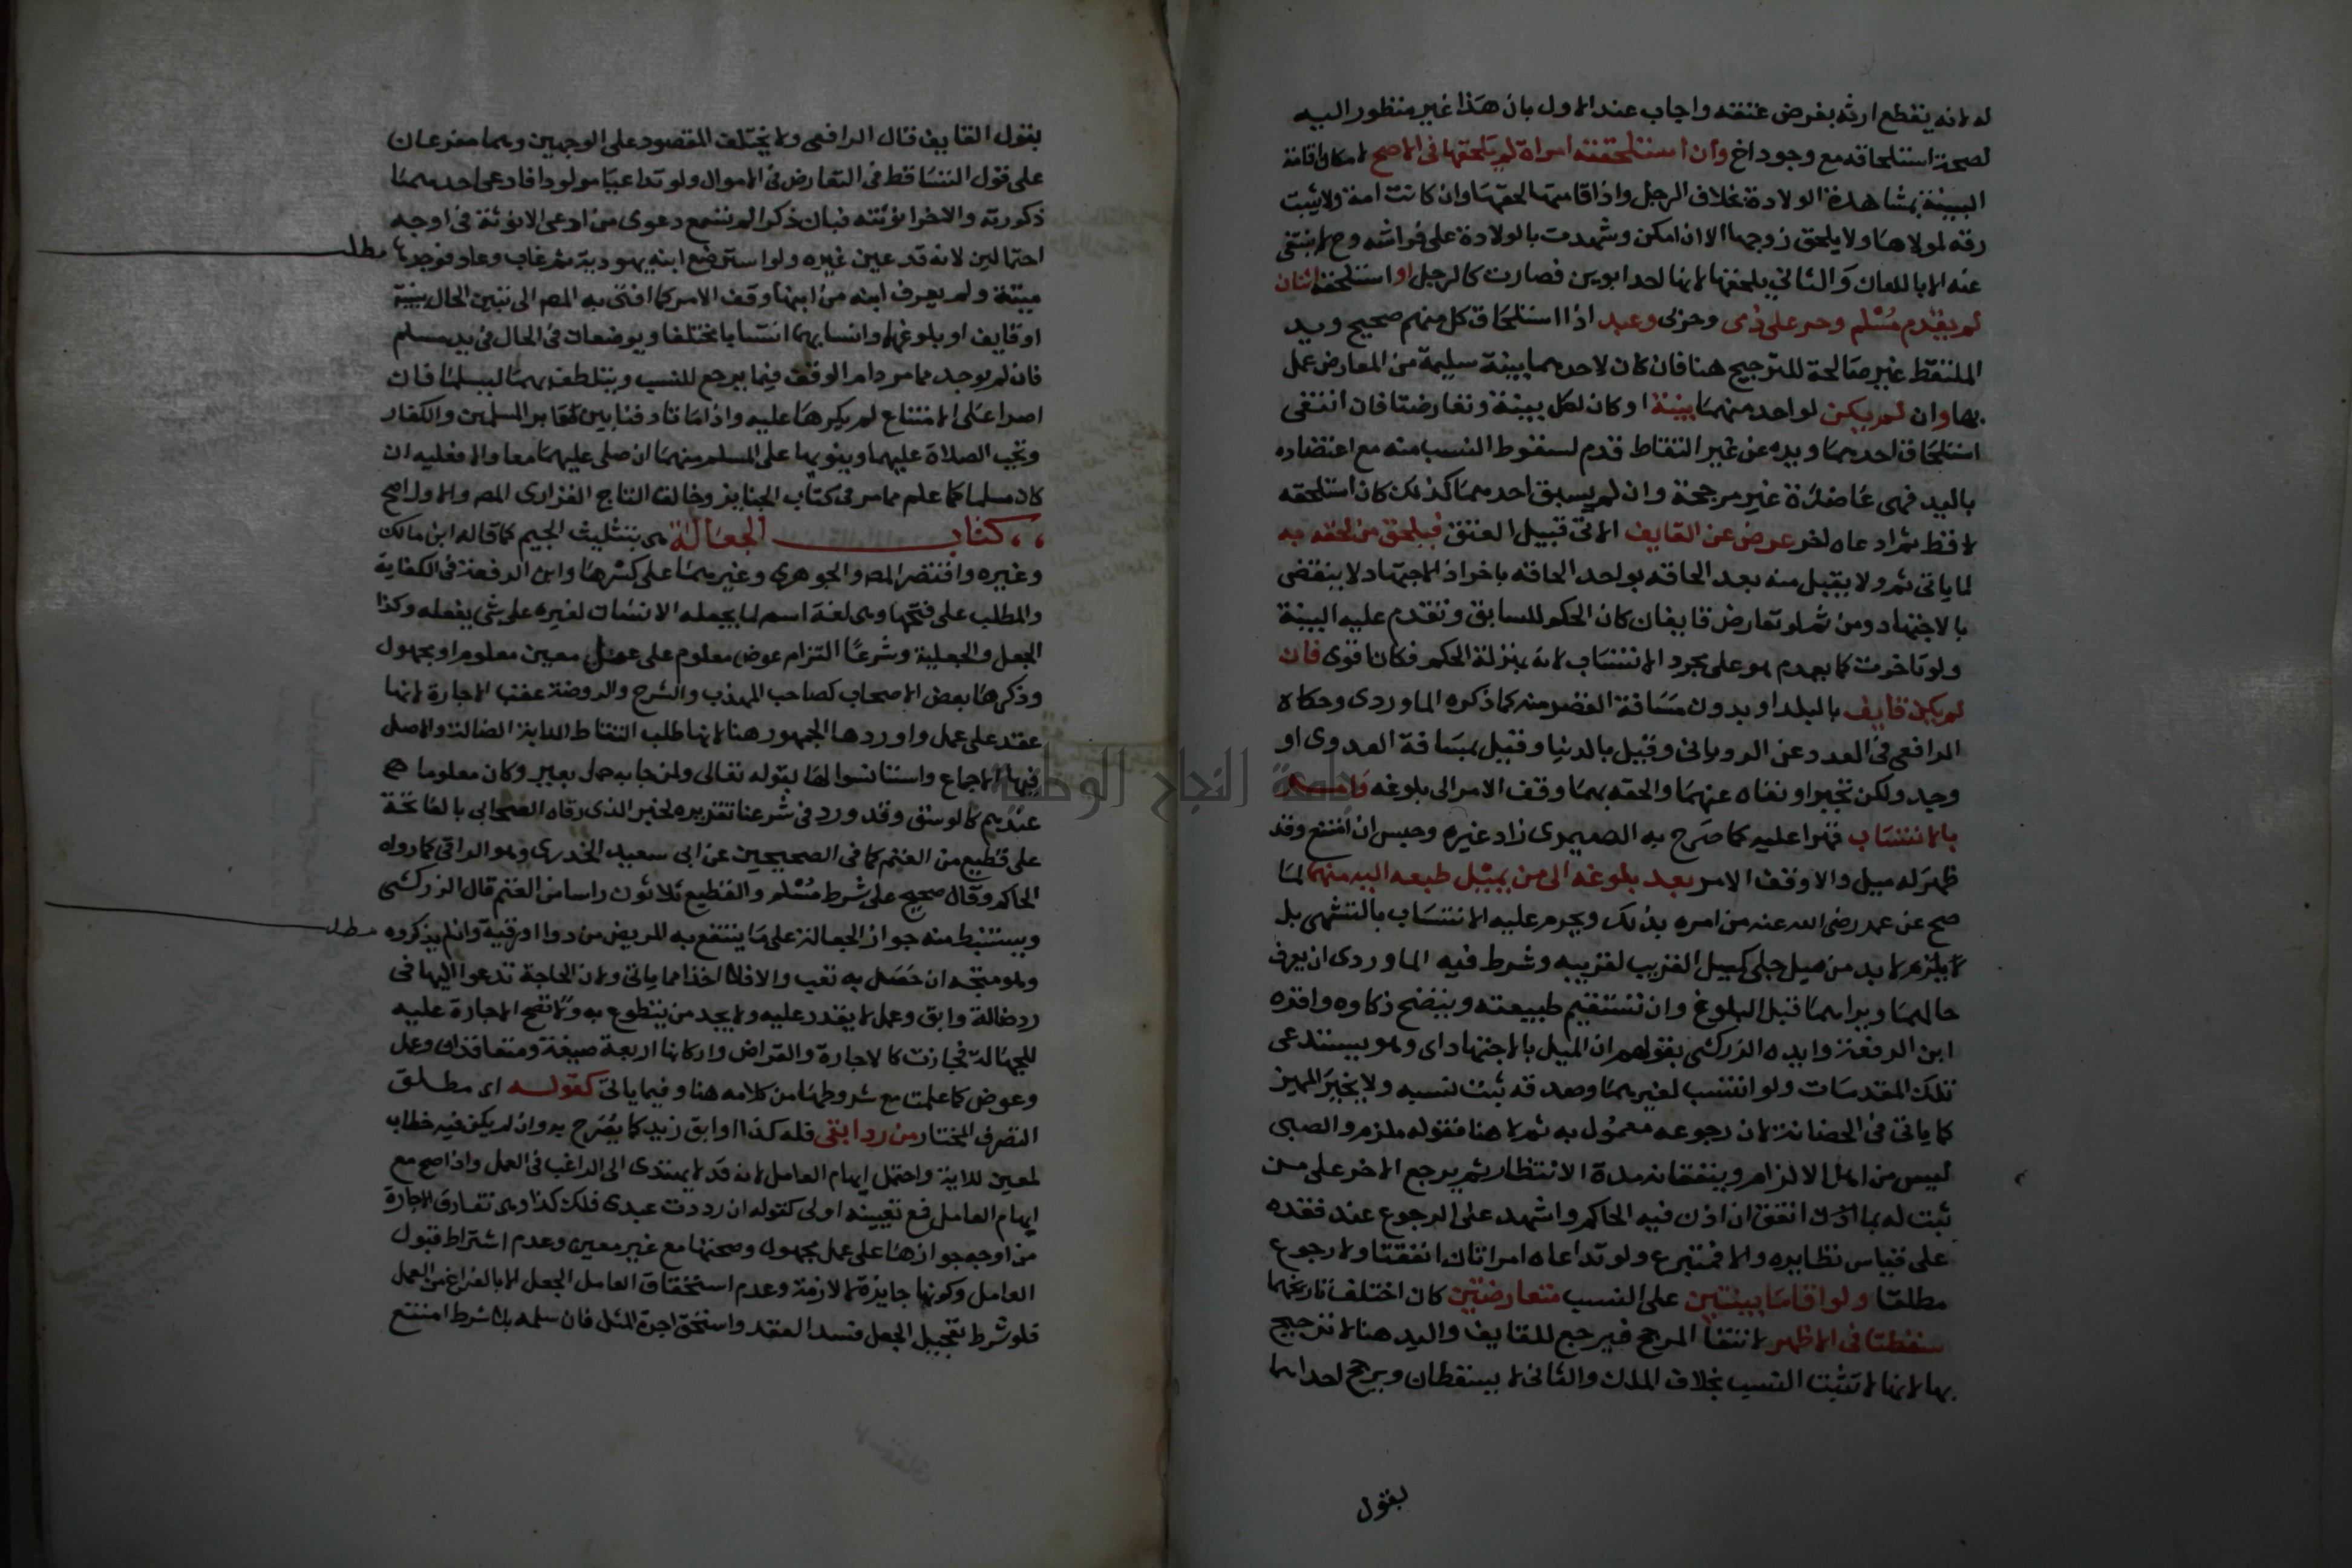 له لانه يقطع ارثه بفرض عتقه واجاب عند الاول بان هذا غير منظور اليه
لصحة استلحاقه مع وجود اخ وان استلحقته امراة لم يلحقها في الاصح لامكان اقامة
البينة بمشاهدة الولادة بخلاف الرجل واذا اقامتها لحقها وان كانت امة ولا يثبت
رقه لمولاها ولا يلحق زوجها الا ان امكن وشهدت بالولادة على فراشه وح لا ينتفي
عنه الا باللعان والثاني يلحقها لانها احد ابوين فصارت كالرجل او استلحقه اثنان
لم يقدم مسلم وحر على ذمي وحربي وعبد اذا استلحاق كل منهم صحيح ويد
الملتقط غير صالحة للترجيح هنا فان كان لاحدهما بينة سليمة من المعارض عمل
بها وان لم يكن لواحد منهما بينة او كان لكل بينة وتعارضتا فان انتفى
استلحاق احدهما ويده عن غير التقاط قدم لسقوط النسب منه مع اعتضاده
باليد فهي عاضدة غير مرجحة وان لم يسبق احدهما كذلك كان استلحقه
لاقط ثم ادعاه اخر عرض على القايف الاتي قبيل العتق فيلحق من لحقه به
لما ياتي ثم ولا يقبل منه بعد الحاقه بواحد الحاقه باخر اذ الاجتهاد لا ينقض
بالاجتهاد ومن ثم لو تعارض قايفان كان الحكم للسابق وتقدم عليه البينة
ولو تاخرت كما يقدم هو على مجرد الانتساب لانه بمنزلة الحكم فكان اقوى فان
لم يكن قايف بالبلد او بدون مسافة القصر منه كما ذكره الماوردي وحكاه
الرافعي في العدد عن الروياني وقيل بالدنيا وقيل بمسافة العدوى او
وجد ولكن تحير او نفاه عنهما والحقه بهما وقف الامر الى بلوغه وامر
بالانتساب قهرا عليه كما صرح به الصيمري زاد غيره وحبس ان امتنع وقد
ظهر له ميل والا وقف الامر بعد بلوغه الى من يميل طبعه اليه منهما لما
صح عن عمر رضي الله عنه من امره بذلك ويحرم عليه الانتساب بالتشهي بل
لا يلزم لا بد من ميل جبلي كميل القريب لقريبه وشرط فيه الماوردي ان يعرف
حالهما ويراهما قبل البلوغ وان تستقيم طبيعته ويتضح ذكاوه واقره
ابن الرفعة وايده الزركشي بقولهم ان الميل بالاجتهاد اي وهو يستدعي
تلك المقدمات ولو انتسب لغيرهما وصدقه ثبت نسبه ولا يخير المميز
كما ياتي في الحضانة لان رجوعه معمول به ثم لا هنا فقوله ملزم والصبي
ليس من اهل الالزام وينفقانه مدة الانتظار ثم يرجع الاخر على من
ثبت له بما انفق ان اذن فيه الحاكم واشهد على الرجوع عند فقده
على قياس نظايره والا فمتبرع ولو تداعاه امراتان انفقتا ولا رجوع
مطلقا ولو اقاما بينتين على النسب متعارضتين كان اختلف تاريخهما
سقطتا في الاظهر لانتفا المرجح فيرجع للقايف واليد هنا لا ترجيح
بها لانها لا تثبت النسب بخلاف الملك والثاني لا يسقطان ويرجح احداهما
بقول
بقول القايف قال الرافعي ولا يختلف المقصود على الوجهين وهما مفرعان
على قول التساقط في التعارض في الاموال ولو تداعيا مولودا فادعى احدهما
ذكورته والاخر انوثته فبان ذكرا لم تسمع دعوى من ادعى الانوثة في اوجه
احتمالين لانه قد عين غيره ولو استرضع ابنه يهودية ثم غاب وعاد فوجدها
مطلب
ميتة ولم يعرف ابنه من ابنها وقف الامر كما افتى به المص الى تبين الحال ببينة
او قايف او بلوغهما وانتسابهما انتسابا مختلفا ويوضعان في الحال في يد مسلم
فان لم يوجد مما مر دام الوقف فيما يرجع للنسب ويتلطف بهما ليسلما فان
اصرا على الامتناع لم يكرها عليه واذا ماتا دفنا بين مقابر المسلمين والكفار
وتجب الصلاة عليهما وينويها على المسلم منهما ان صلى عليهما معا والا فعليه ان
كان مسلما كما علم مما مر في كتاب الجنايز وخالف التاج الفزاري المص والاول اصح
كتاب الجعالة هي بتثليث الجيم كما قاله ابن مالك
وغيره واقتصر المص والجوهري وغيرهما على كسرها وابن الرفعة في الكفاية
والمطلب على فتحها وهي لغة اسم لما يجعله الانسان لغيره على شي يفعله وكذا
الجعل والجعيلة وشرعا التزام عوض معلوم على عمل معين معلوم او مجهول
وذكرها بعض الاصحاب كصاحب المهذب والشرح والروضة عقب الاجارة لانها
عقد على عمل واوردها الجمهور هنا لانها طلب التقاط الدابة الضالة والاصل
فيها الاجماع واستانسوا لها بقوله تعالى ولمن جا به حمل بعير وكان معلوما
عندهم كالوسق وقد ورد في شرعنا تقريره لخبر الذي رقاه الصحابي بالفاتحة
على قطيع من الغنم كما في الصحيحين عن ابي سعيد الخدري وهو الراقي كما رواه
الحاكم وقال صحيح على شرط مسلم والقطيع ثلاثون راسا من الغنم قال الزركشي
ويستنبط منه جواز الجعالة على ما ينتفع به المريض من دوا او رقية وان لم يذكروه
مطلب
وهو متجه ان حصل به تعب والا فلا اخذا مما ياتي ولان الحاجة تدعوا اليها في
رد ضالة وابق وعمل لا يقدر عليه ولا يجد من يتطوع به ولا تصح الاجارة عليه
للجهالة فجازت كالاجارة والقراض واركانها اربعة صيغة ومتعاقدان وعمل
وعوض كما علمت مع شروطها من كلامه هنا وفيما ياتي كقوله اي مطلق
التصرف المختار من رد ابقي فله كذا او ابق زيد كما يصرح به وان لم يكن فيه خطاب
لمعين للاية واحتمل ابهام العامل لانه قد لا يهتدي الى الراغب في العمل واذا صح مع
ابهام العامل فمع تعيينه اولى كقوله ان رددت عبدي فلك كذا وهي تفارق الاجارة
من اوجه جوازها على عمل مجهول وصحتها مع غير معين وعدم اشتراط قبول
العامل وكونها جايزة لا لازمة وعدم استحقاق العامل الجعل الا بالفراغ من العمل
فلو شرط تعجيل الجعل فسد العقد واستحق اجرة المثل فان سلمه بلا شرط امتنع
جامعة النجاح الوطنية